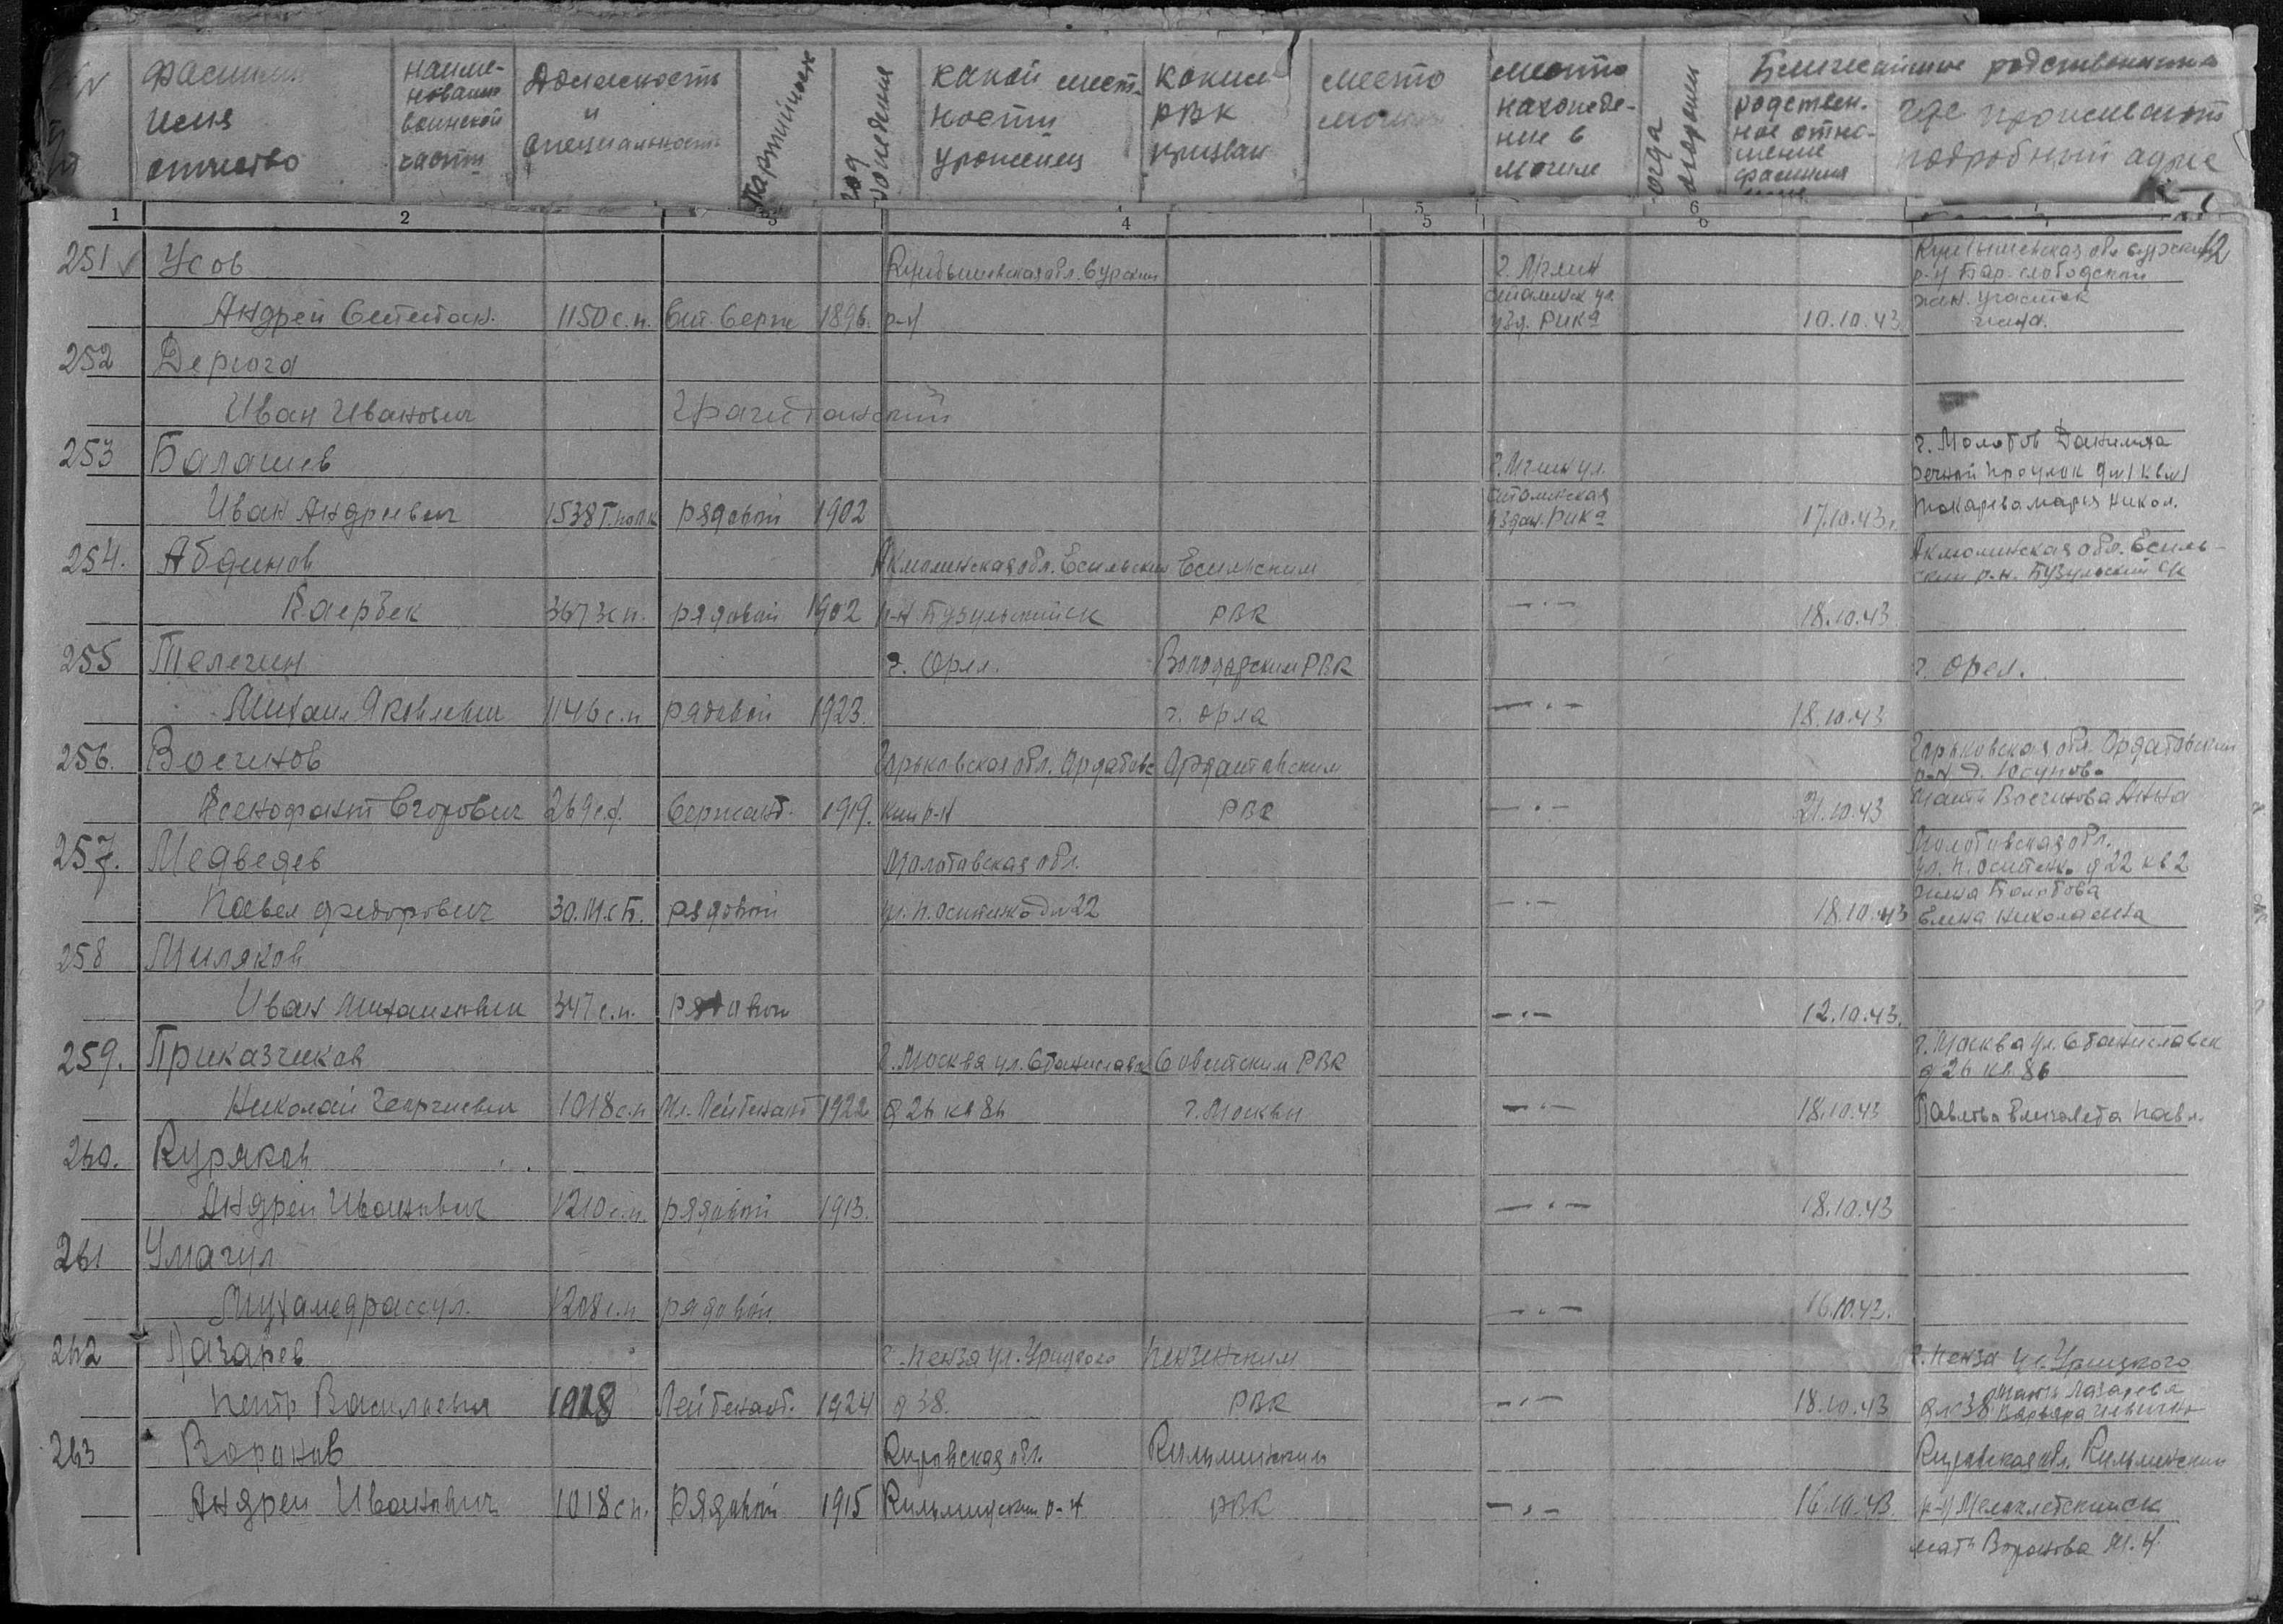 фамилия имя отчество
наименование воинской части
Должность и специальность
Партийность
год рождения
какой местности уроженец
каким РВК призван
место
место нахождение в могиле
когда похоронен
Ближайшие родственники
родствен. ное отно- шение фамилия
где проживают подробный адрес
1 2 3 4 5 5 6 6
12
251 Усов Куйбышевская обл. Сурский г. Мглин Куйбышевская обл Сурский
р-н Бар. слободской
Андрей Степан. 1150 с.п. Ст. Серж 1896. р-н Сталинск ул. узд. Рика 10.10.43
жена.
252 Дерюга
Иван Иванович Гражданский
253 Балашев г. Мглин ул. г. Молотов Данилиха
речной проулок
Иван Андреевич 1538 рядовой 1902 Сталинская Рика 17.10.43г. Токарева Мария Никол.
254. Абдинов Акмолинская обл. Есильский Есильским Акмолинская обл. Есиль-
ский р-н.
Каербек рядовой 1902 р-н РВК —·— 18.10.43
255 Телегин г. Орел. Володарским РВК г. Орел.
Михаил Яковлевич 1146 с.п рядовой 1923. г. Орла —·— 18.10.43
256. Восчинов Горьковская обл. Ардатовс Ардатовским Горьковская обл. Ардатовский
р-н д. Юсупово
Ксенофонт Егорович Сержант. 1919. кий р-н РВК —·— 21.10.43 мать Восчинова Анна
257. Медведев Молотовская обл. Молотовская обл.
ул. П. Осипенко д 22 кв 2
Павел Федорович рядовой ул. П. Осипенко дм 22 —·— 18.10.43 жена
Елена Николаевна
258 Миляков
Иван Михайлович 347 с.п. рядовой —·— 12.10.43.
259. Приказчиков г. Москва ул. Станиславск Советским РВК г. Москва ул. Станиславск
д 26 кв. 86
Николай Георгиевич 1018 с.п Мл. Лейтенант 1922 д 26 кв 86 г. Москвы —·— 18.10.43 Елизавета Павл.
260. Куряков
Андрей Иванович 1210 с.п. рядовой 1913. —·— 18.10.43
261 Умагул
Мухамедрассул. 1208 с.п рядовой —·— 16.10.43.
262 Лазарев г. Пенза ул. Урицкого Пензенским г. Пенза ул. Урицкого
Петр Васильевич 1018 Лейтенант. 1924 д 38. РВК —·— 18.10.43 д № 38 мать Лазарева
Варвара
263 Воронов Кировская обл. Кильмезским Кировская обл. Кильмезский
Андрей Иванович 1018 с п. Рядовой 1915 Кильмезский р-н РВК —·— 16.10.43. р-н
мать Воронова М. Н